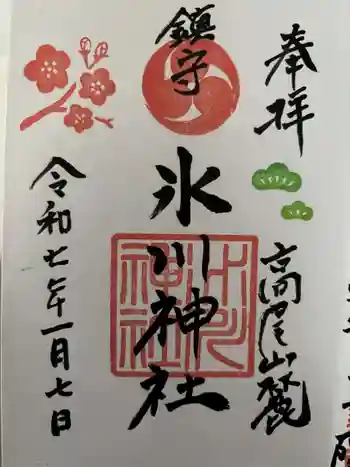 奉拝
高尾山麓
鎮守
氷川神社
氷川神社
令和七年一月七日